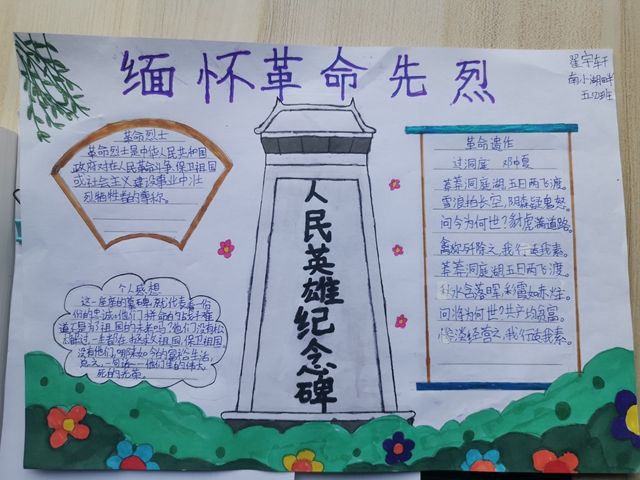 缅怀革命先烈
翟宇轩
南小湖畔
五(2)班
革命烈士
革命烈士是中华人民共和国
政府对在人民革命斗争、保卫祖国
或社会主义建设事业中壮
烈牺牲者的尊称。
人民英雄纪念碑
革命遗作
过洞庭 邓中夏
莽莽洞庭湖,五日两飞渡。
雪浪拍长空,阴森疑鬼怒。
问今为何世?豺虎满道路。
禽狝歼除之,我行适我素。
莽莽洞庭湖,五日两飞渡。
秋水含落晖,彩霞如赤炷。
问将为何世?共产均贫富。
惨淡经营之,我行适我素。
个人感想
这一座座的墓碑,就代表着一份
份的忠诚。他们拼命的战斗难
道不是为了祖国的未来吗?他们没有松
保卫祖国
没有他们,哪来如今的富裕生活,
总之,一句话——他们生的伟大,
死的光荣。